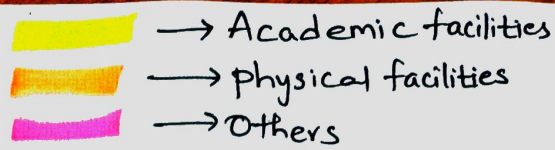 → Academic facilities
→ physical facilities
→ Others